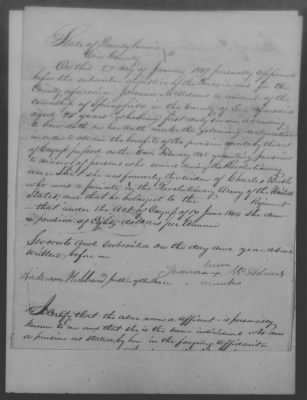 State of Pennsylvania
Erie County } ss
On this 27 day of January 1847 personally appeared
before the subscriber a justice of the Peace in and for the
County aforesaid McAdams a resident of the
township of Springfield in the County of Erie aforesaid
aged 78 years who being first duly sworn according
to law doth on her oath make the following declaration
in order to obtain the benefit of the provision made by the act
of Congress passed on the granting pensions
to widows of persons who served during the Revolutionary
war. That she was formerly the widow of Charles
who was a private in the Revolutionary Army of the United
States and that he belonged to the Regiment
that under the Act of Congress of 17 June 1844 she drew
a pension of Eighty dollars per annum
Sworn to and subscribed on the day and year above
written, before me
her
x McAdams
mark
Hubbard Justice of the Peace
I certify that the above named affiant is personally
known to me and that she is the same individual who drew
a pension as stated by her in the foregoing affidavit